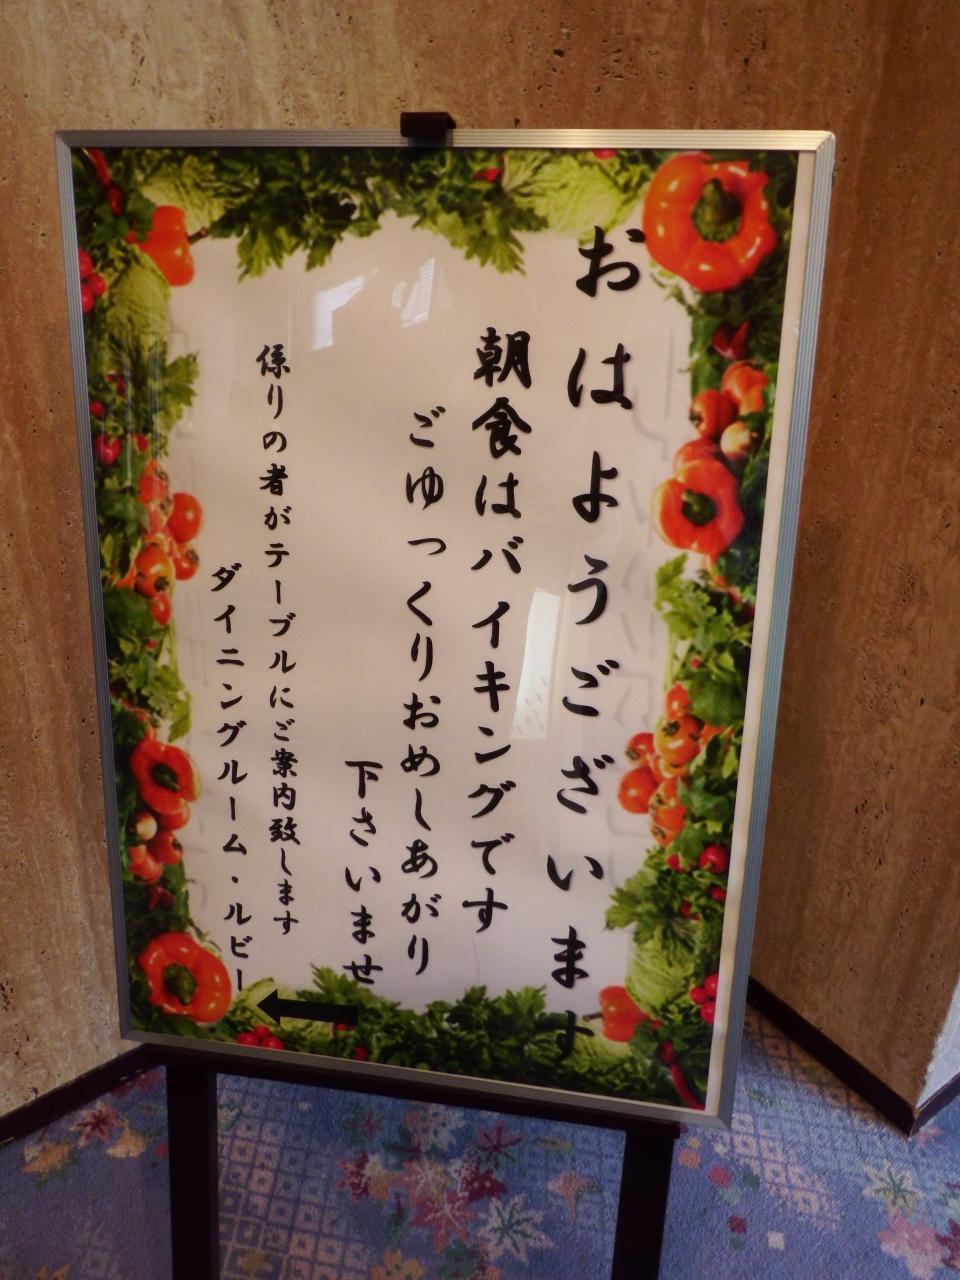 おはようございます
朝食はバイキングです
ごゆっくりおめしあがり
下さいませ
係りの者がテーブルにご案内致します
ダイニングルーム・ルビー